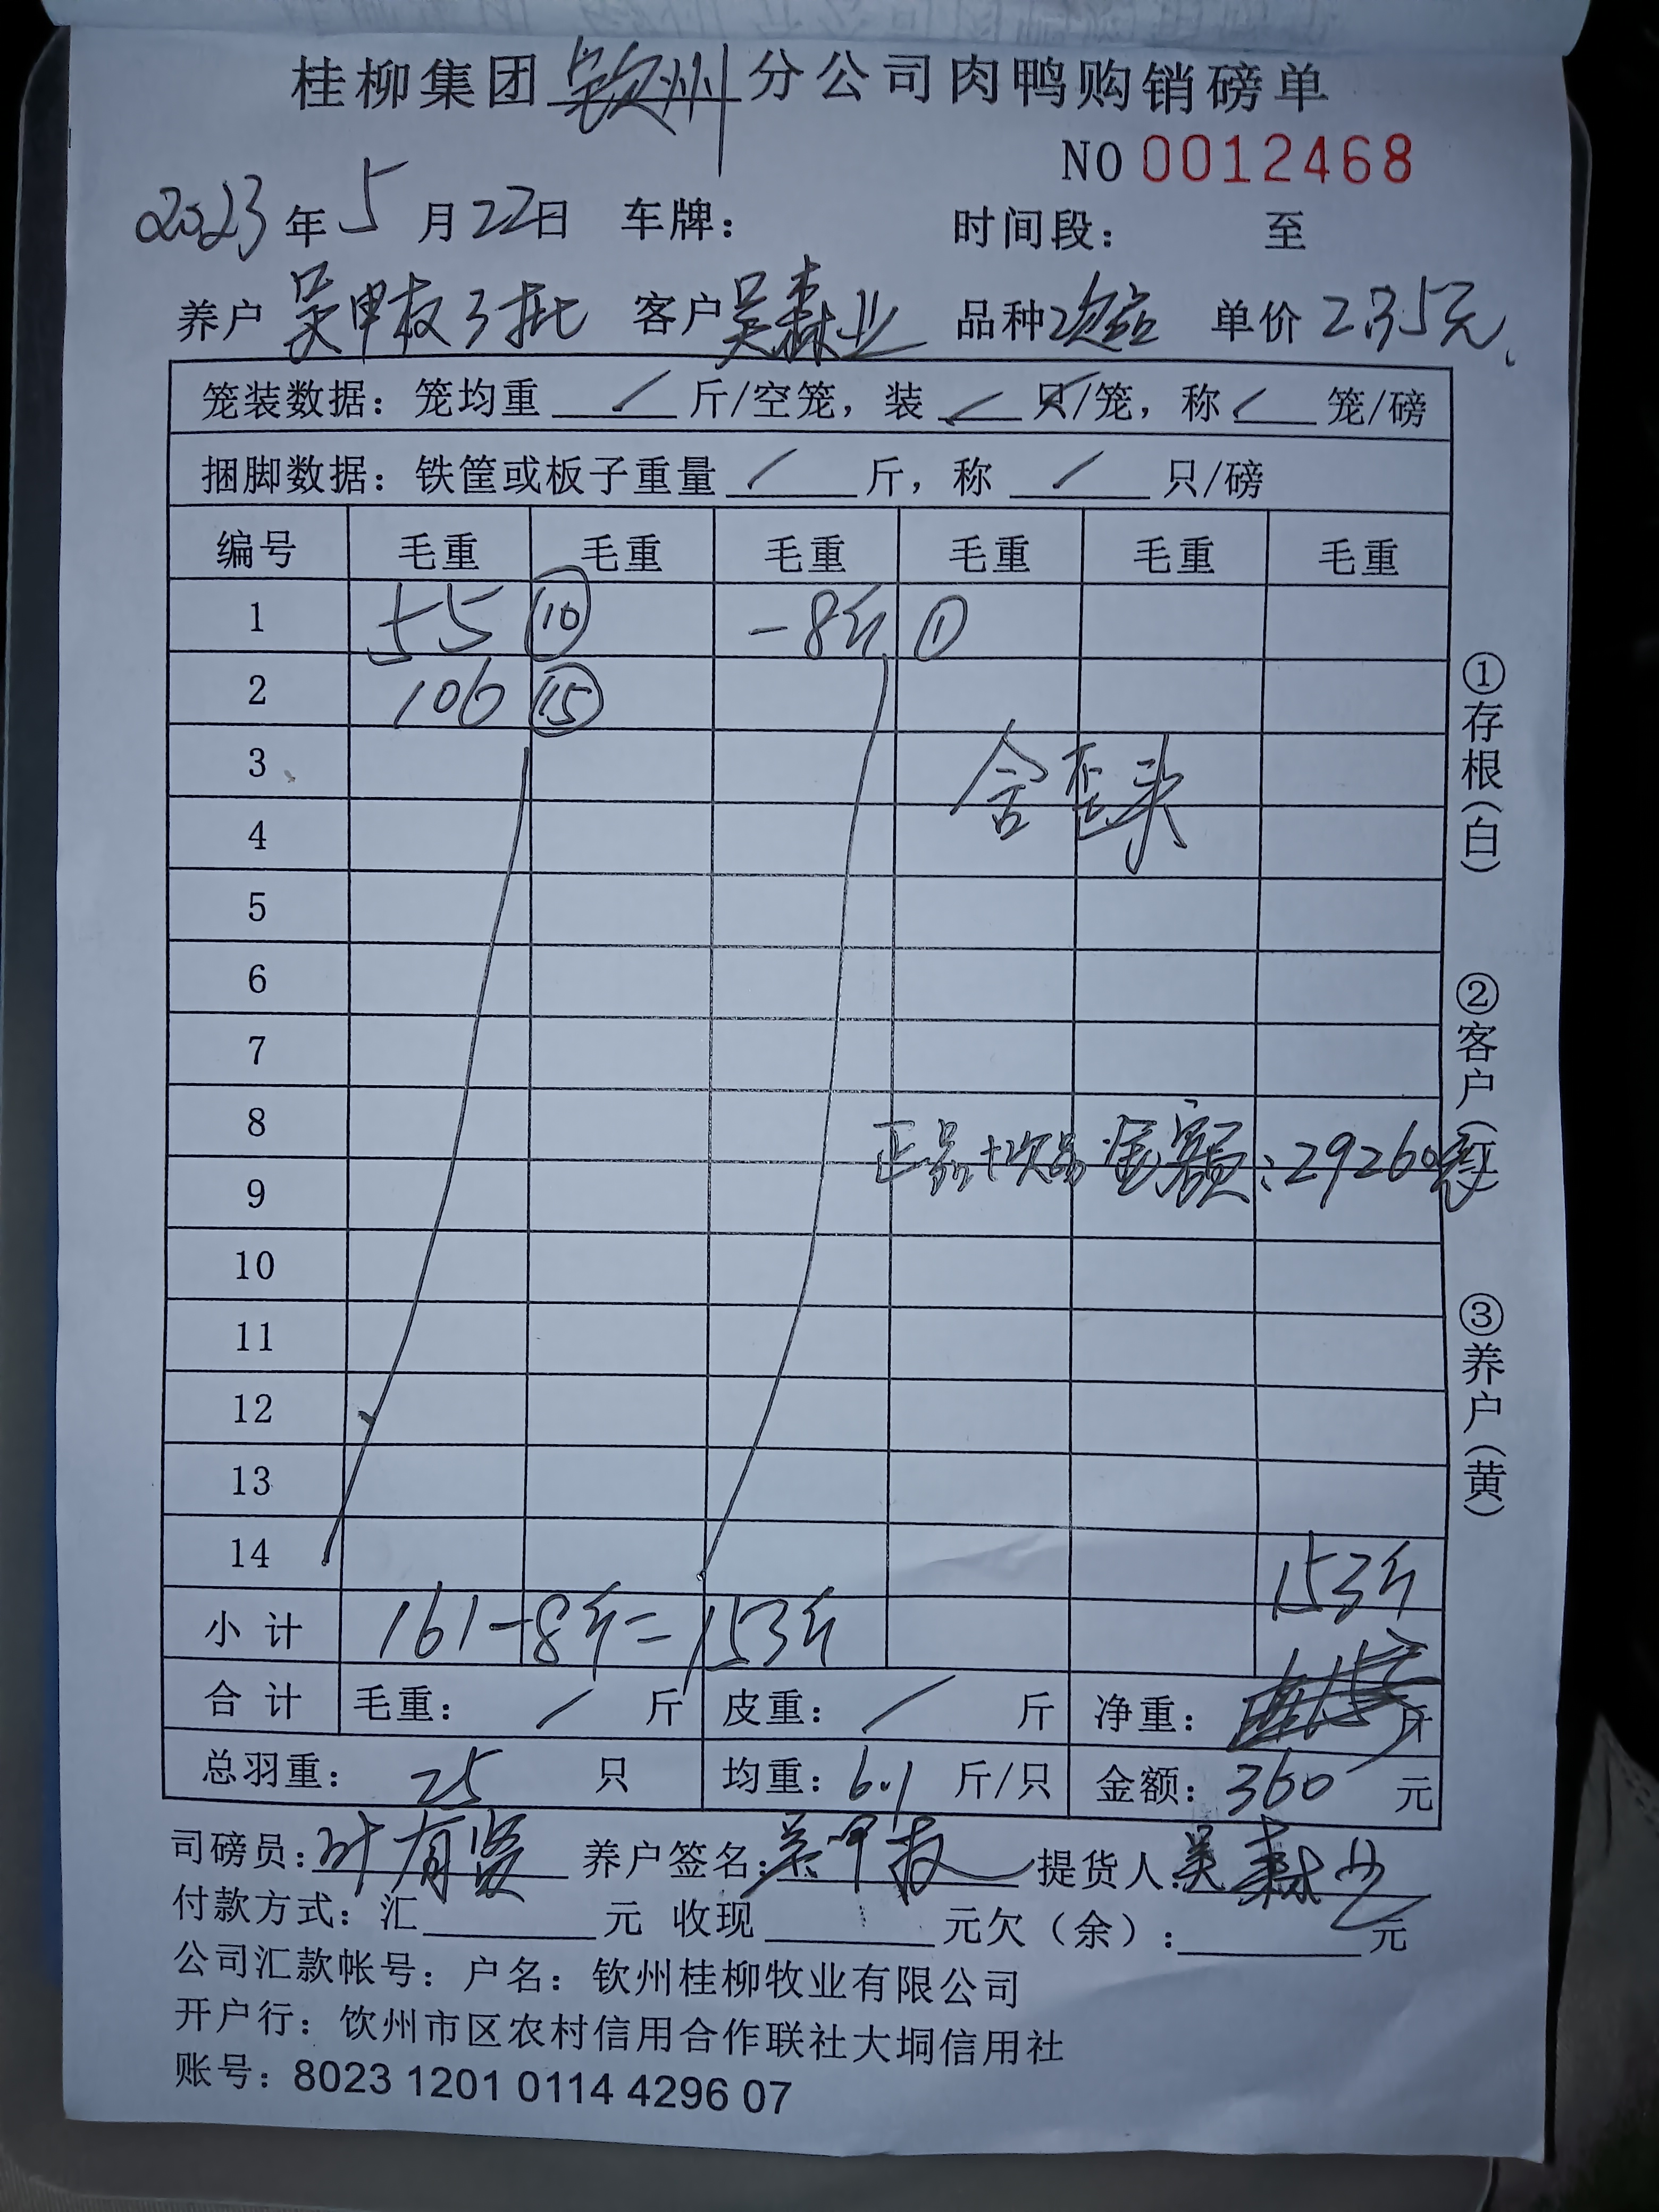 桂柳集团钦州分公司肉鸭购销磅单
NO 0012468
2023年5月22日 车牌： 时间段： 至
养户 吴甲权3批 客户 吴森业 品种 次品 单价 2.35元
笼装数据：笼均重 / 斤/空笼，装 / 只/笼，称 / 笼/磅
捆脚数据：铁筐或板子重量 / 斤，称 / 只/磅
编号 毛重 毛重 毛重 毛重 毛重 毛重
1 55 ⑩ -8斤 ①
2 106 ⑮
3 含歪头
4
5
6
7
8
正品+次品 金额：29260元
9
10
11
12
13
14 153斤
小计 161-8斤=153斤
合计 毛重： / 斤 皮重： / 斤 净重： 斤
总羽重： 25 只 均重：6.1 斤/只 金额：360 元
司磅员：叶有贤 养户签名：吴甲权 提货人 吴森业
付款方式：汇 元 收现 元欠（余）： 元
公司汇款帐号：户名：钦州桂柳牧业有限公司
开户行：饮州市区农村信用合作联社大垌信用社
账号：8023 1201 0114 4296 07
①存根（白）
②客户（红）
③养户（黄）